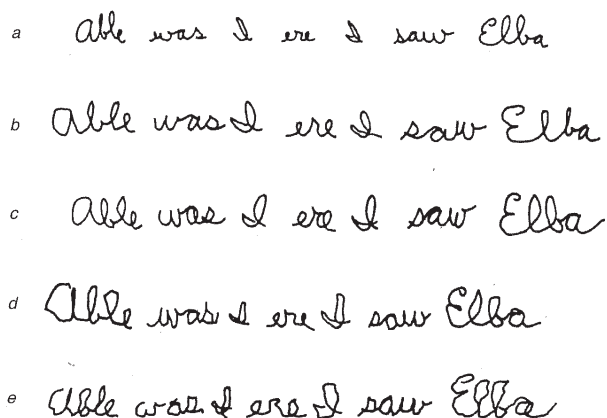 a able was I ere I saw Elba
b able was I ere I saw Elba
c able was I ere I saw Elba
d able was I ere I saw Elba
e able was I ere I saw Elba